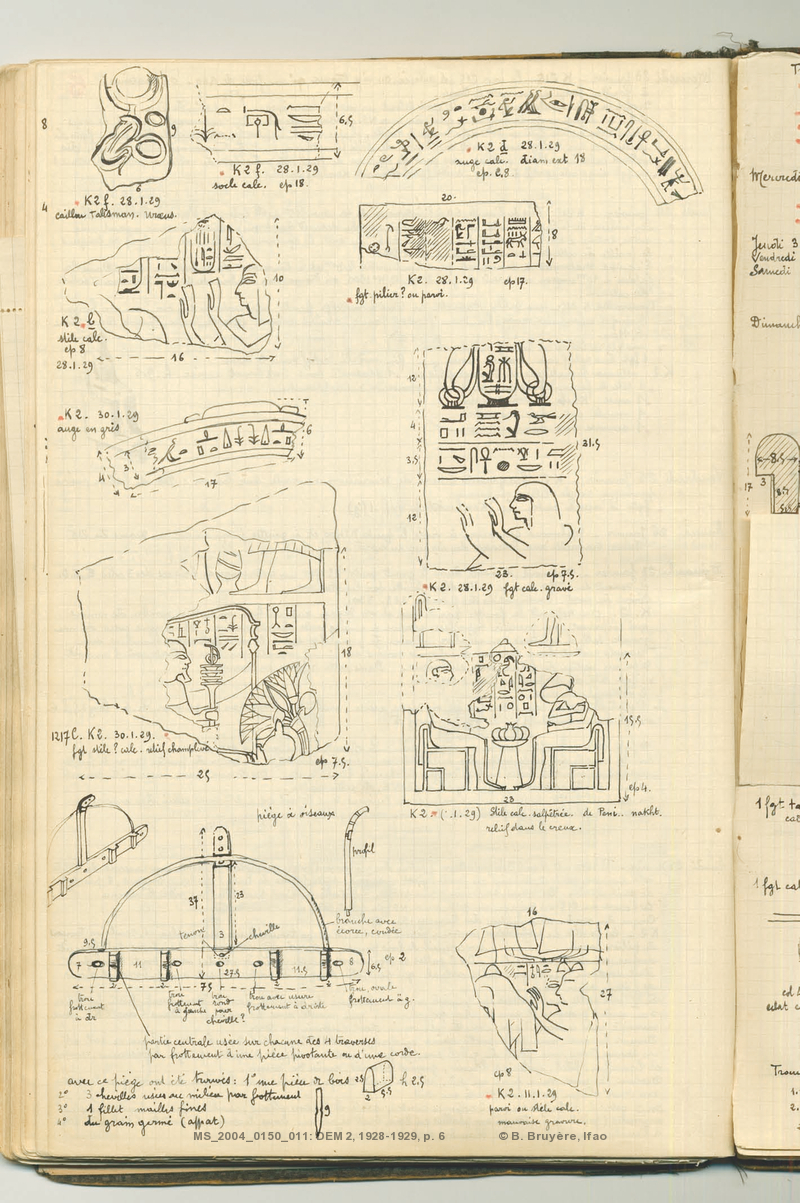 8
9
6
K2 f. 28.1.29
caillou Talisman. Uræus.
4
6,5
K2 f. 28.1.29
socle calc. ep 18.
K2 d 28.1.29
auge calc. diam ext 18
ep. 2,8
10
K2 b
stèle calc.
ep 8
28.1.29
16
20.
8
K2. 28.1.29 ep 17.
fgt. pilier? ou paroi.
K2. 30.1.29
auge en grès
6
3
4
17
12
4
3,5
12
31.5
23. ep 7.5.
K2. 28.1.29 fgt calc. gravé
18
1217 C. K2. 30.1.29.
fgt stèle? calc. relief champlevé
ep 7.5.
25
15,5
ep 4.
23
K2 .1.29) Stèle calc. salpêtrée. de Peni.. nakht.
relief dans le creux.
piège à oiseaux
profil
37
23
tenons
3
cheville
branche avec
écorce, cordée
9,5
7
11
27.5
11,5
8
6,5
ep 2
75
trou
frottement
à dr
trou
frottement
à gauche
trou
rond
pour
cheville?
trou avec usure
frottement à droite
trou, ovale
frottement à g.
partie centrale usée sur chacune des 4 traverses
par frottement d'une pièce pivotante ou d'une corde.
avec ce piège ont été trouvés: 1° une pièce de bois
25
2
5,5
h 2,5
2° 3 chevilles usées au milieu par frottement
9
3° 1 fillet mailles fines
4° du grain germé (appat)
16
27
ep 8
K2. 11.1.29
paroi ou stèle calc.
mauvaise gravure.
MS_2004_0150_011: DEM 2, 1928-1929, p. 6 © B. Bruyère, Ifao
Mercredi
Jeudi 3
Vendredi
Samedi
17
8.5
3
8.5
1 fgt
1 fgt cal
1.